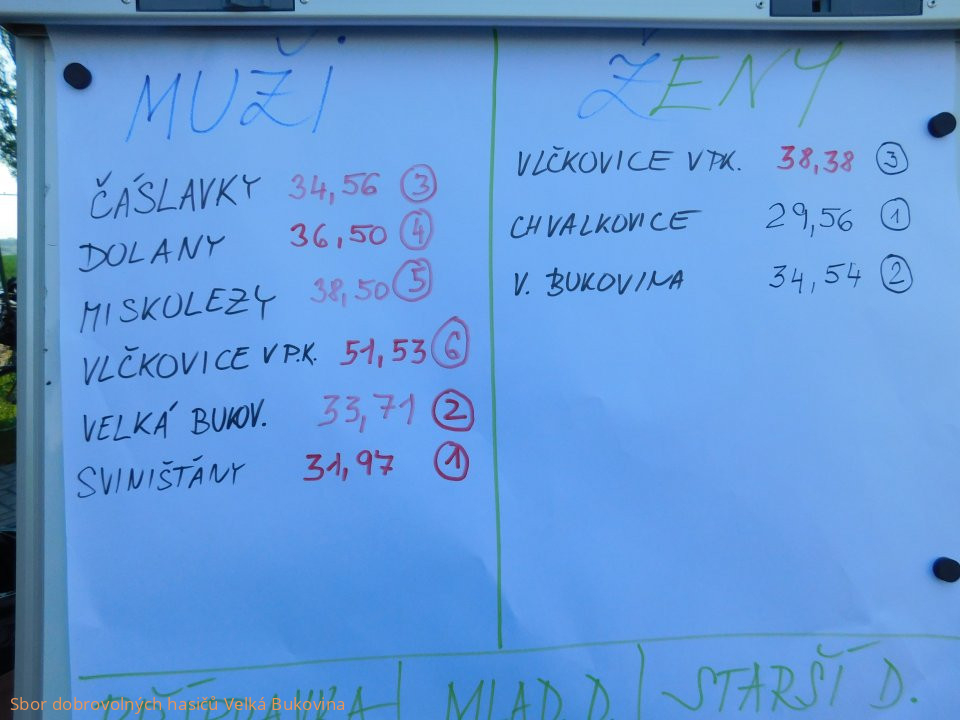 MUŽI
ČÁSLAVKY 34,56 3
DOLANY 36,50 4
MISKOLEZY 38,50 5
VLČKOVICE V P.K. 51,53 6
VELKÁ BUKOV. 33,71 2
SVINIŠŤÁNY 31,97 1
ŽENY
VLČKOVICE V P.K. 38,38 3
CHVALKOVICE 29,56 1
V. BUKOVINA 34,54 2
MLAD. D.
STARŠÍ D.
Sbor dobrovolných hasičů Velká Bukovina